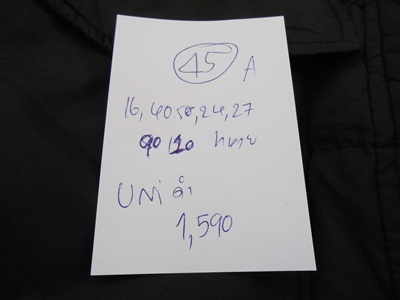 45 A
16, 40.50, 24, 27
90 120 หนา
UNi ดำ
1,590